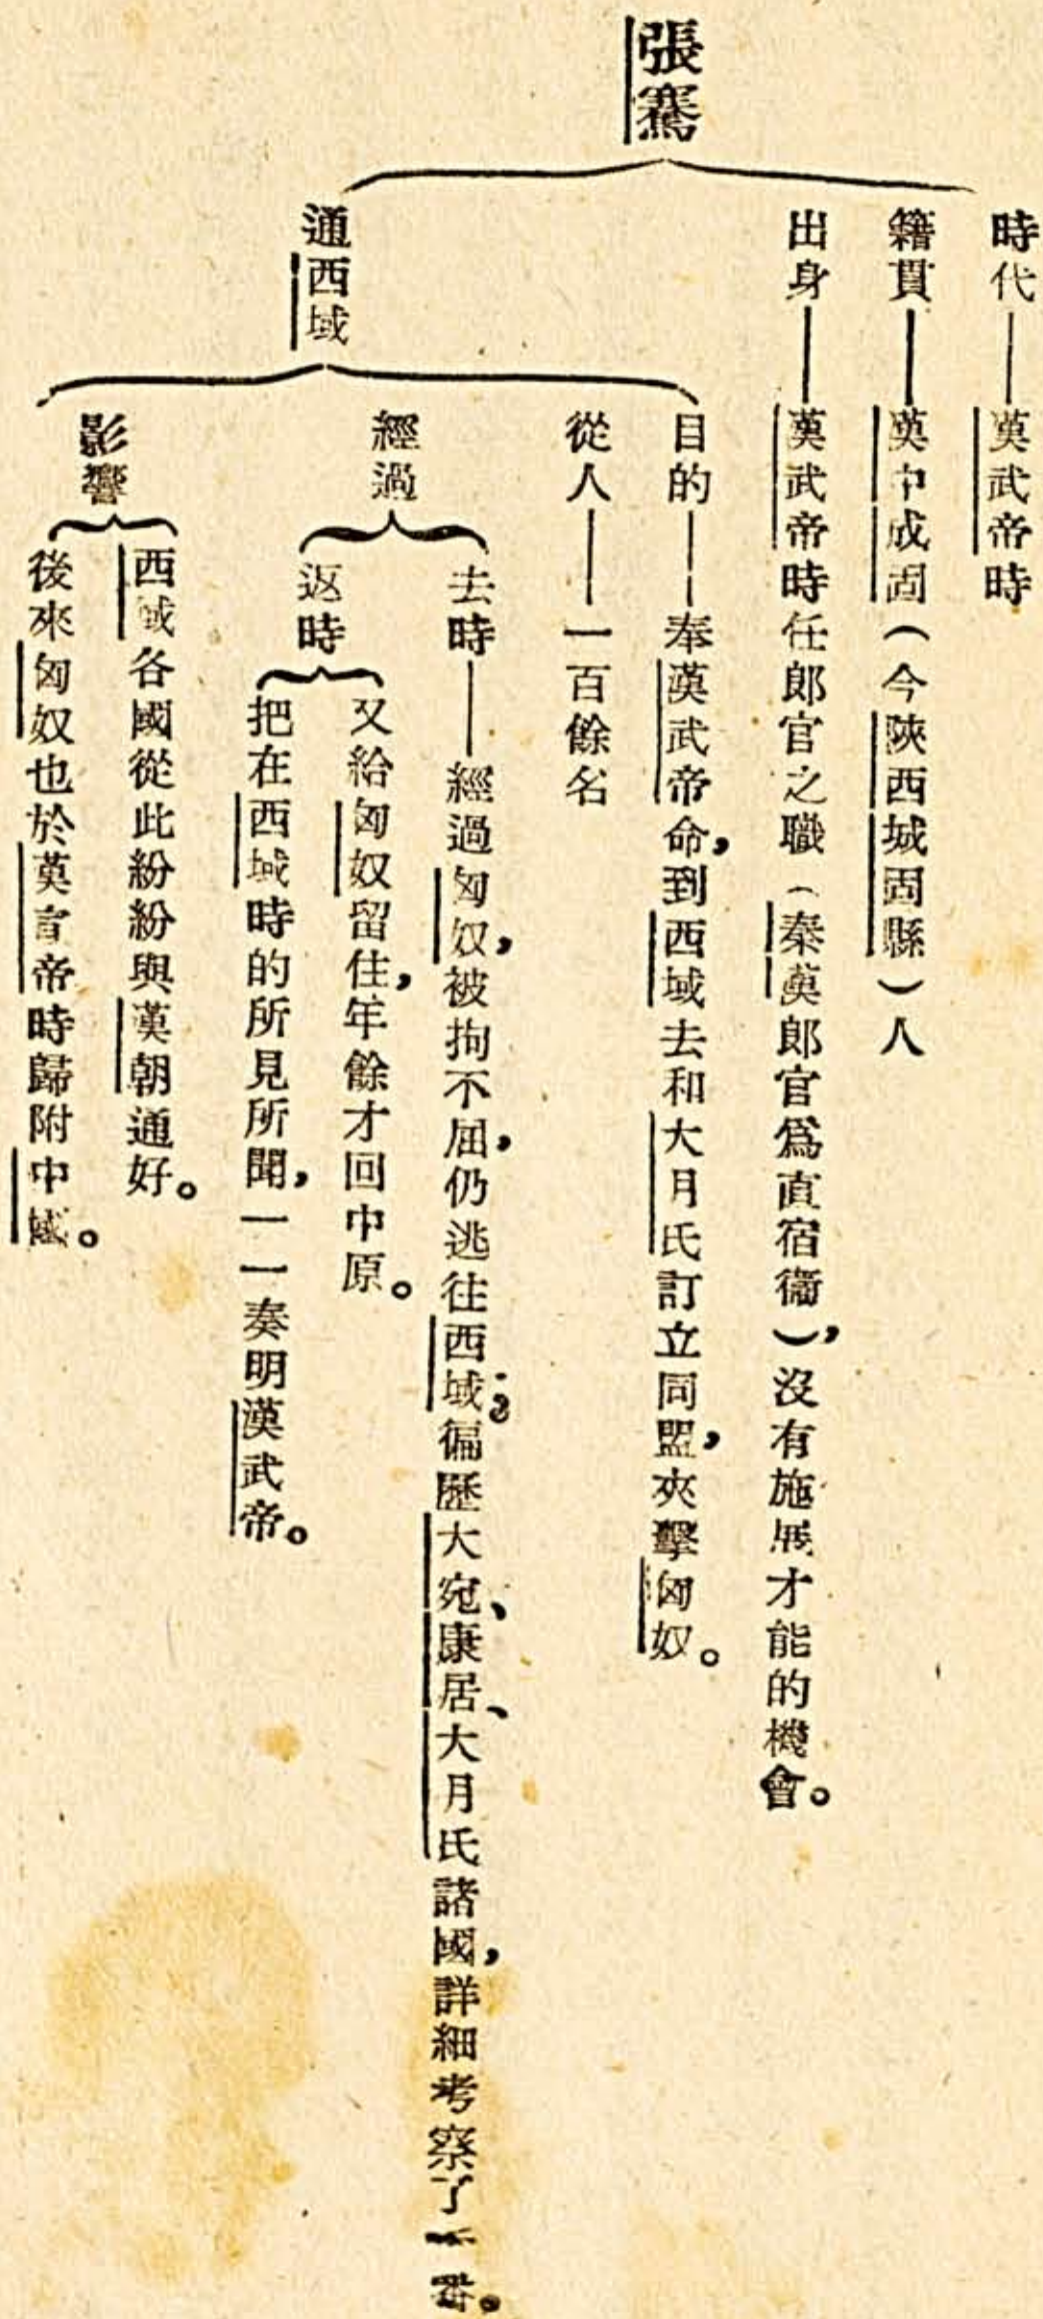 張騫
時代——漢武帝時
籍貫——漢中成固（今陝西城固縣）人
出身——漢武帝時任郎官之職（秦漢郎官爲直宿衞），沒有施展才能的機會。
通西域
目的——奉漢武帝命，到西域去和大月氏訂立同盟，夾擊匈奴。
從人——一百餘名
經過
去時——經過匈奴，被拘不屈，仍逃往西域；徧歷大宛、康居、大月氏諸國，詳細考察了一番。
返時
又給匈奴留住，年餘才回中原。
把在西域時的所見所聞，一一奏明漢武帝。
影響
西域各國從此紛紛與漢朝通好。
後來匈奴也於漢宣帝時歸附中國。